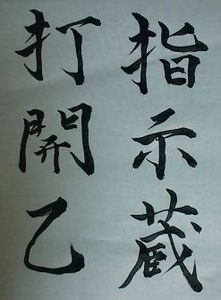 指示蔵
打開乙